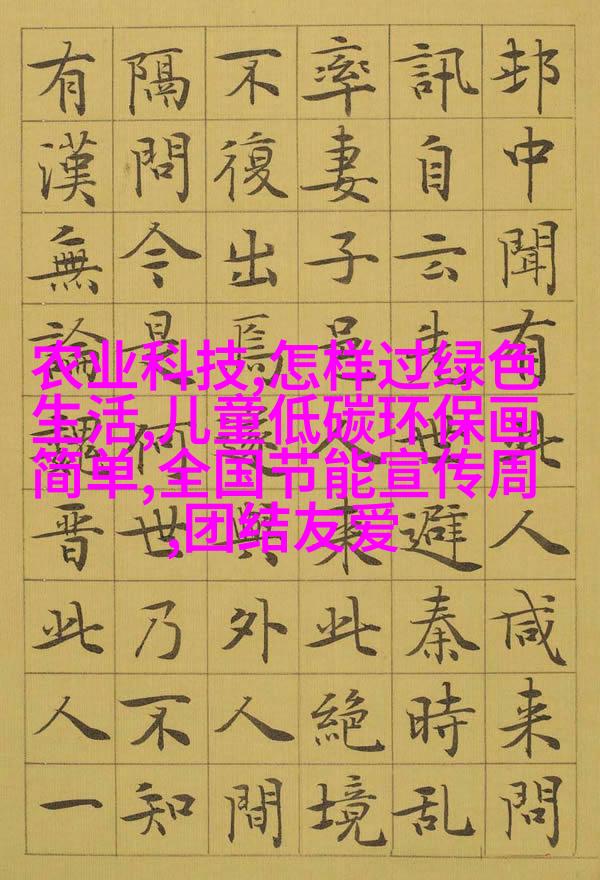 邨中聞有此人咸来問
訊自云先世避秦時乱
率妻子邑人来此絶境
不復出焉遂與外人間
隔問今是何世乃不知
有漢無論魏晋此人一
农业科技,怎样过绿色
生活,儿童低碳环保画
简单,全国节能宣传周
,团结友爱